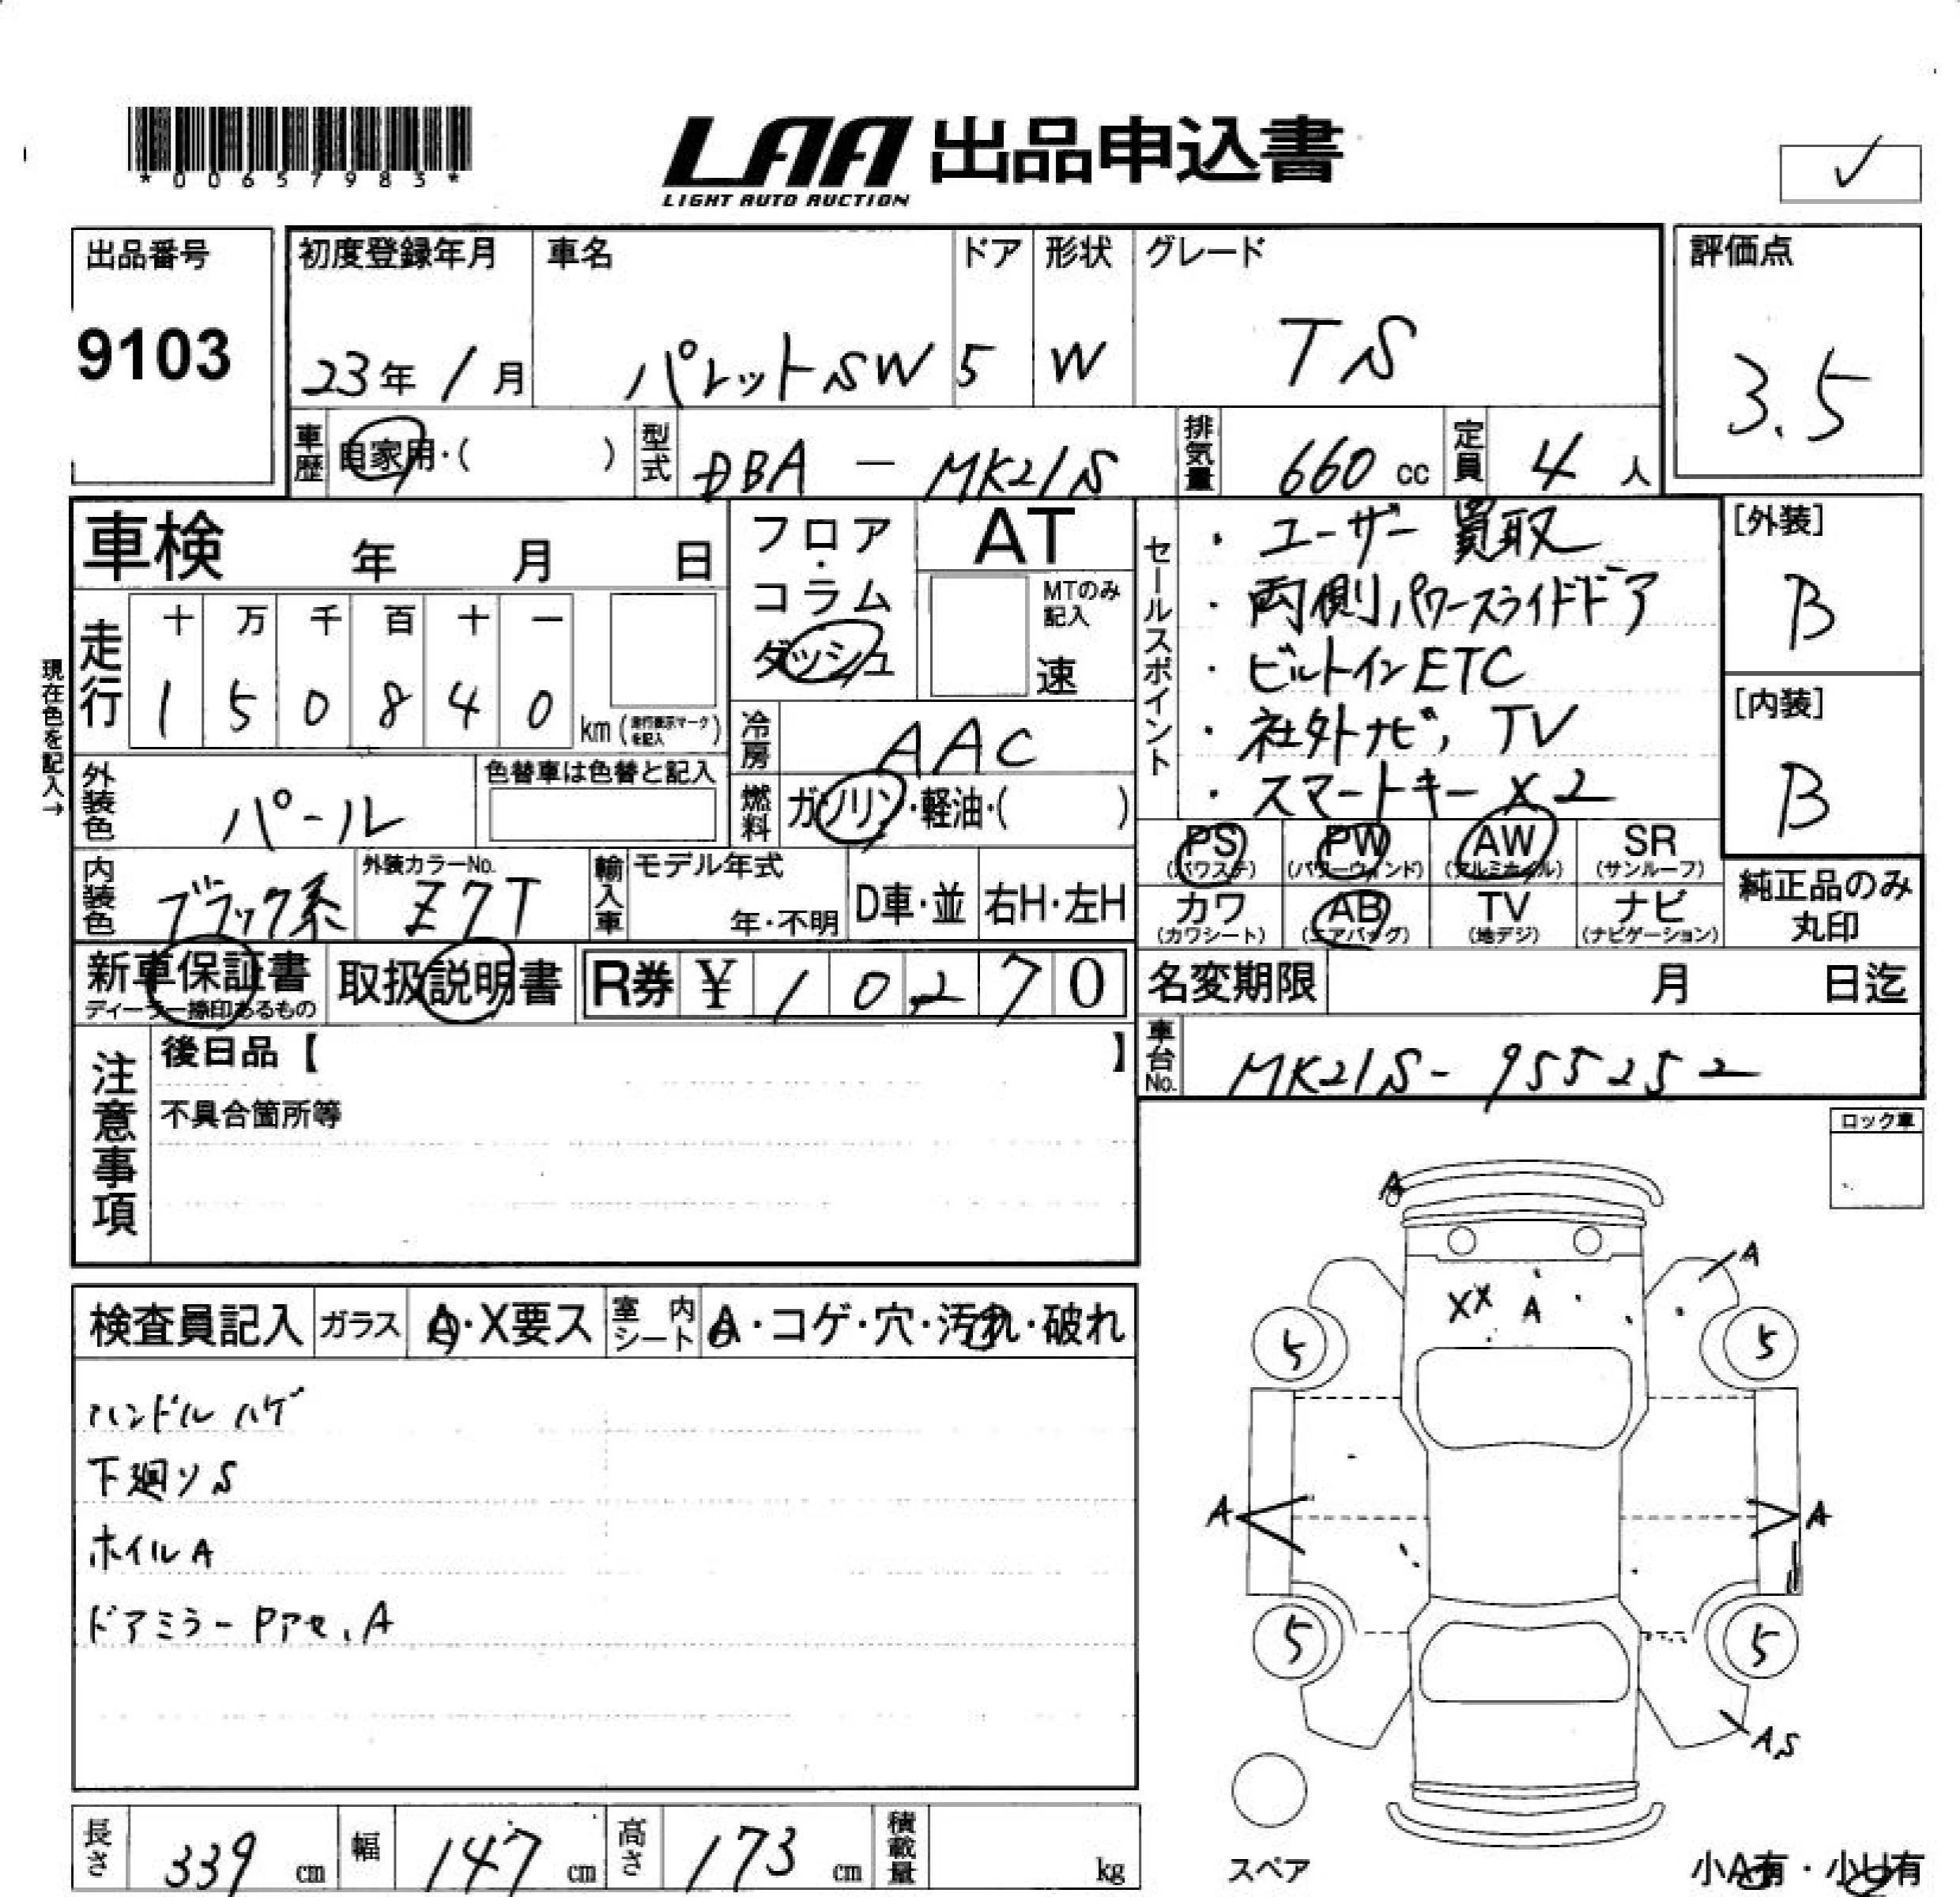 *00657983*
LAA 出品申込書
LIGHT AUTO AUCTION
✓
出品番号
9103
初度登録年月 車名 ドア 形状 グレード
23年 1月 パレットSW 5 W TS
評価点
3.5
車歴 自家用・( ) 型式 DBA — MK21S 排気量 660 cc 定員 4 人
車検 年 月 日
フロア・コラム ダッシュ
AT
MTのみ記入
速
セールスポイント
・ユーザー買取
・両側パワースライドドア
・ビルトインETC
・社外ナビ, TV
・スマートキー X2
[外装]
B
[内装]
B
現在色を記入→
走行 十 万 千 百 十 一
1 5 0 8 4 0 km (走行表示マークを記入)
冷房 AAC
外装色 パール
色替車は色替と記入
燃料 ガソリン・軽油・( )
内装色 ブラック系
外装カラーNo.
Z7T
輸入車 モデル年式
年・不明
D車・並 右H・左H
PS (パワステ) PW (パワーウィンド) AW (アルミホイル) SR (サンルーフ)
カワ (カワシート) AB (エアバッグ) TV (地デジ) ナビ (ナビゲーション)
純正品のみ丸印
新車保証書
ディーラー捺印あるもの
取扱説明書
R券 ¥ 1 0 2 7 0
名変期限 月 日迄
車台No. MK21S-955252
注意事項
後日品【 】
不具合箇所等
ロック車
検査員記入 ガラス A・X要ス 室内シート A・コゲ・穴・汚れ・破れ
ハンドル ハゲ
下廻りS
ホイルA
ドアミラー Pアセ、A
A
A
XX A
5 5
A A
5 5
AS
スペア
小A有・小U有
長さ 339 cm 幅 147 cm 高さ 173 cm 積載量 kg